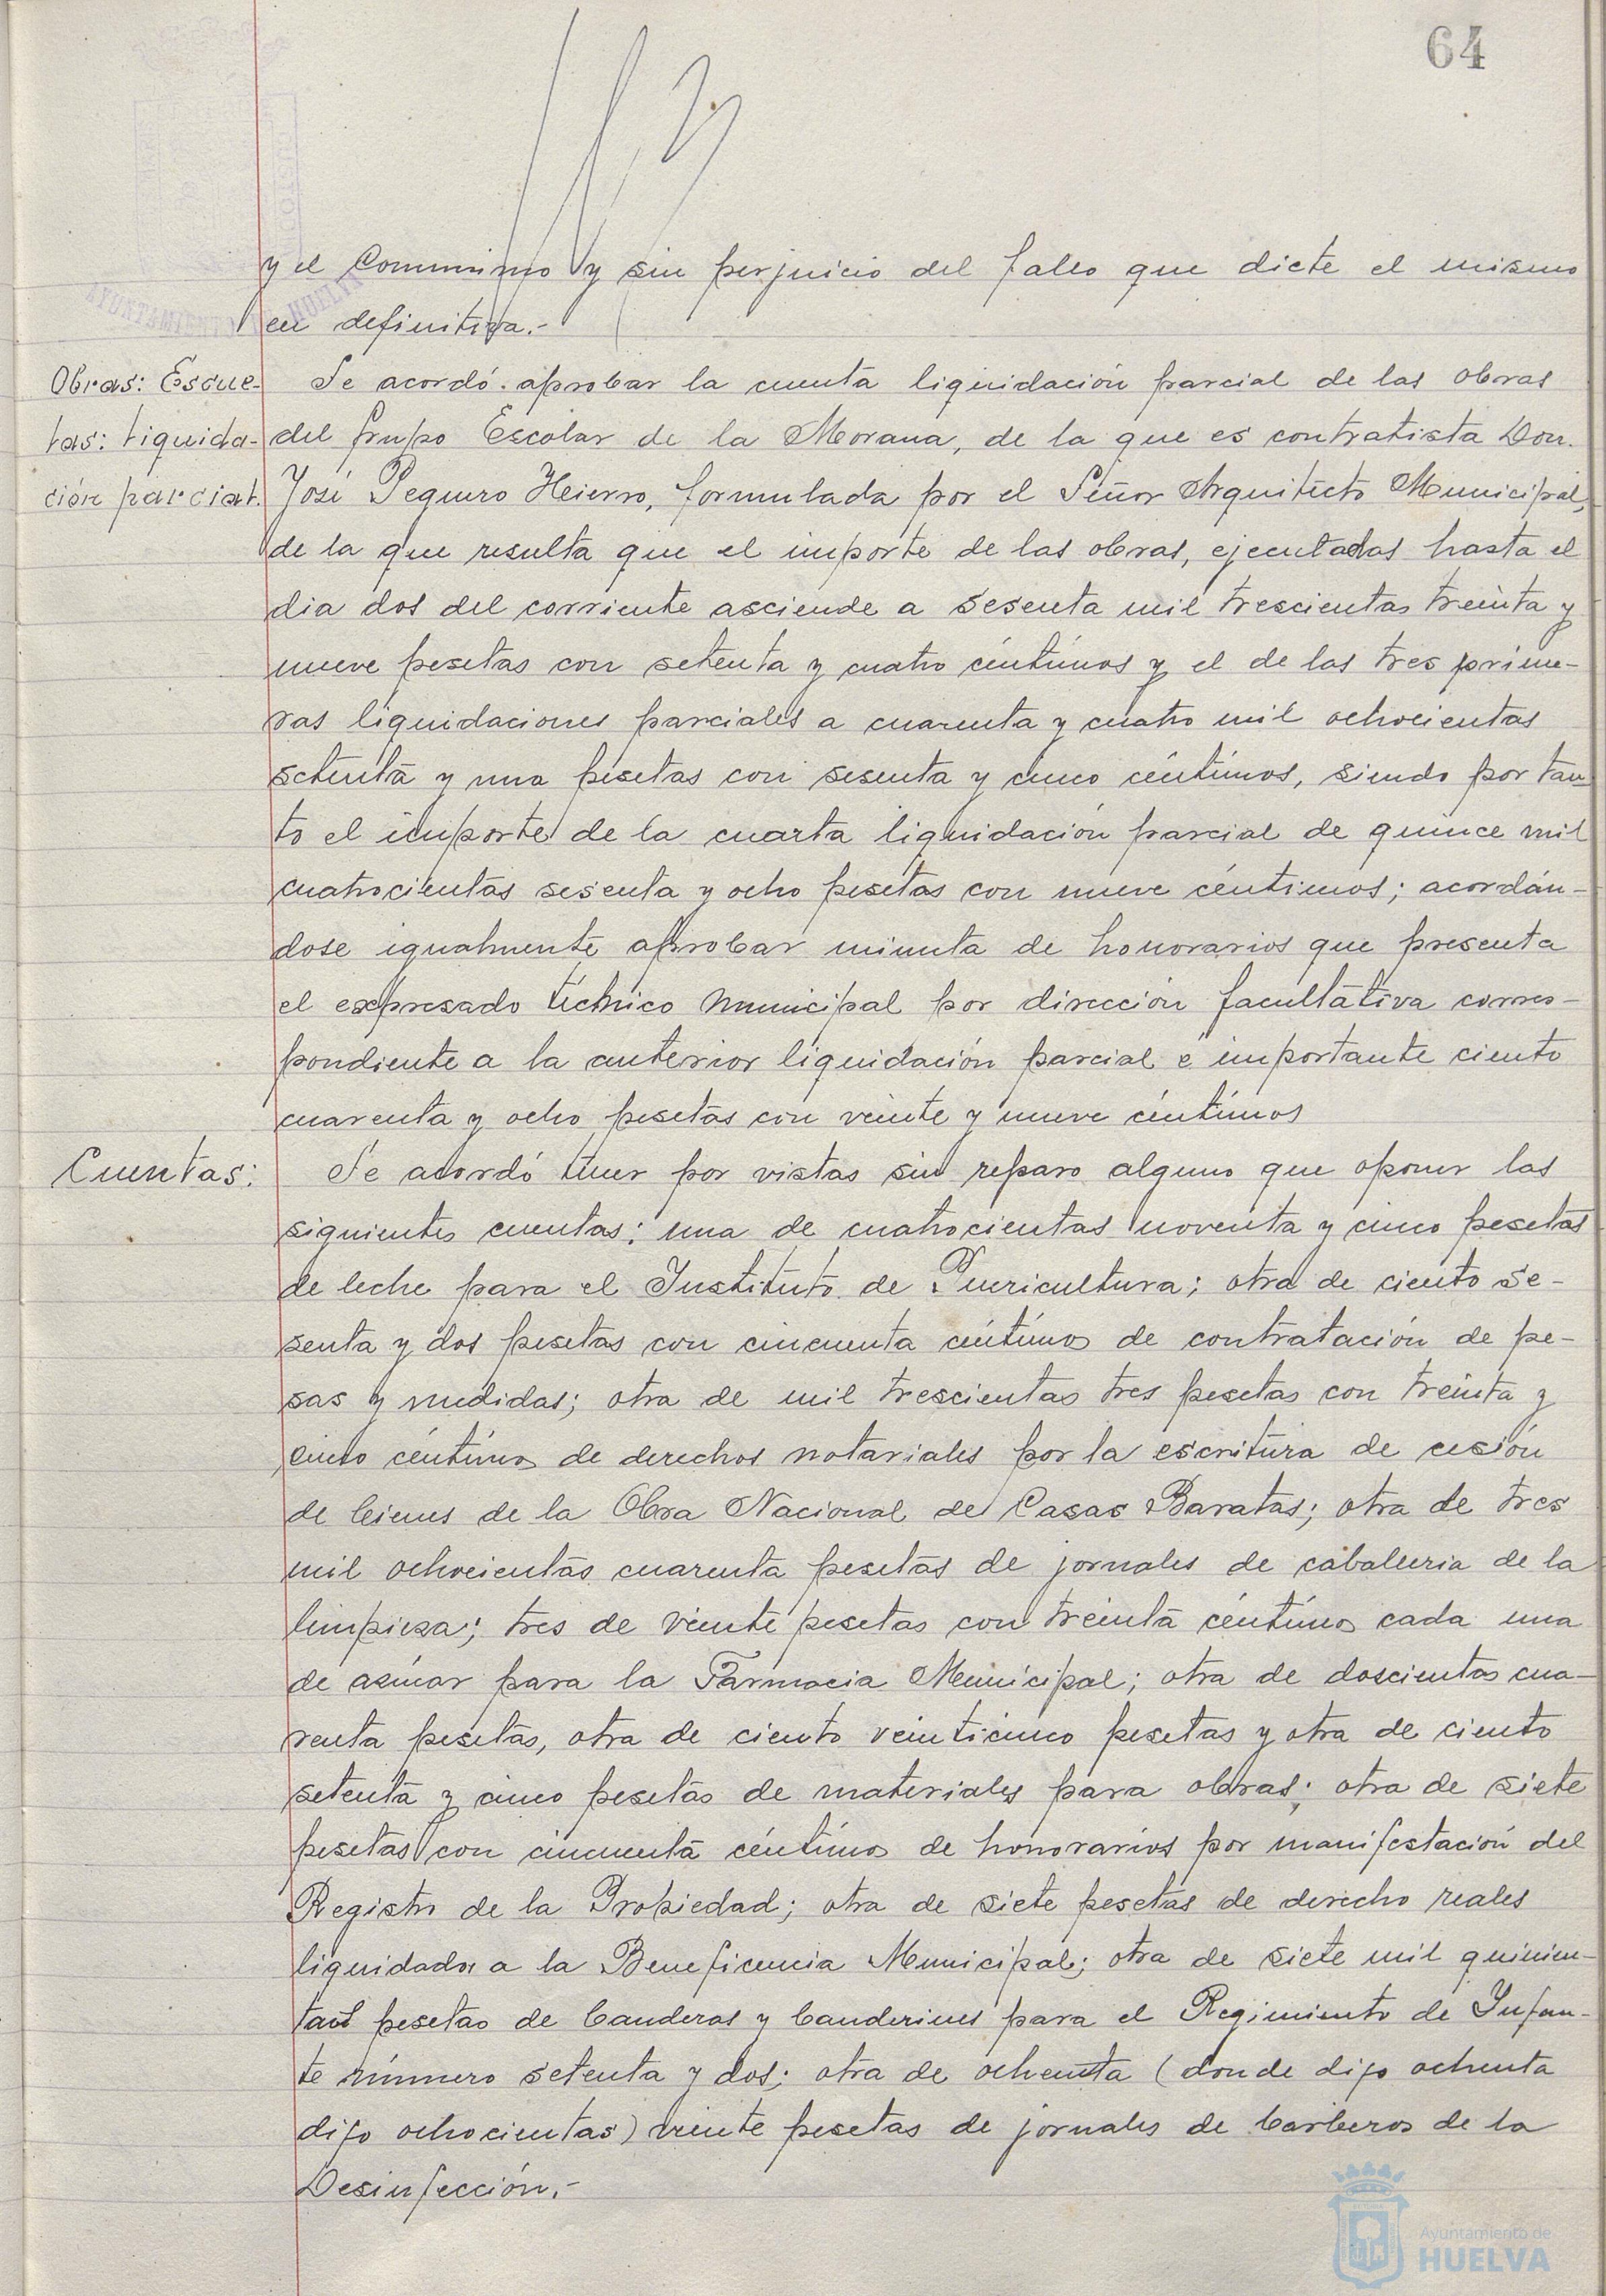 64
y el Commismo y sin perjuicio del fallo que dicte el mismo
en definitiva.-
Obras: Escue-
las: Liquida-
ción parcial.
Se acordó aprobar la cuenta liquidación parcial de las obras
del Grupo Escolar de la Morana, de la que es contratista Don
José Peguero Hierro, formulada por el Señor Arquitecto Municipal,
de la que resulta que el importe de las obras, ejecutadas hasta el
dia dos del corriente asciende a sesenta mil trescientas treinta y
nueve pesetas con setenta y cuatro céntimos y el de las tres prime-
ras liquidaciones parciales a cuarenta y cuatro mil ochocientas
setenta y una pesetas con sesenta y cinco céntimos, siendo por tan-
to el importe de la cuarta liquidación parcial de quince mil
cuatrocientas sesenta y ocho pesetas con nueve céntimos; acordán-
dose igualmente aprobar minuta de honorarios que presenta
el expresado técnico municipal por dirección facultativa corres-
pondiente a la anterior liquidación parcial é importante ciento
cuarenta y ocho pesetas con veinte y nueve céntimos
Cuentas:
Se acordó tener por vistas sin reparo alguno que oponer las
siguientes cuentas: una de cuatrocientas noventa y cinco pesetas
de leche para el Instituto de Puericultura; otra de ciento se-
senta y dos pesetas con cincuenta céntimos de contratación de pe-
sas y medidas; otra de mil trescientas tres pesetas con treinta y
cinco céntimos de derechos notariales por la escritura de cesión
de bienes de la Obra Nacional de Casas Baratas; otra de tres
mil ochocientas cuarenta pesetas de jornales de caballeria de la
limpieza; tres de veinte pesetas con treinta céntimos cada una
de azúcar para la Farmacia Municipal; otra de doscientas cua-
renta pesetas, otra de ciento veinticinco pesetas y otra de ciento
setenta y cinco pesetas de materiales para obras; otra de siete
pesetas con cincuenta céntimos de honorarios por manifestación del
Registro de la Propiedad; otra de siete pesetas de derecho reales
liquidados a la Beneficencia Municipal; otra de siete mil quinien-
tas pesetas de banderas y banderines para el Regimiento de Infan-
te número setenta y dos; otra de ochenta (donde dijo ochenta
dijo ochocientas) veinte pesetas de jornales de barberos de la
Desinfección.-
AYUNTAMIENTO DE HUELVA
Ayuntamiento de
HUELVA